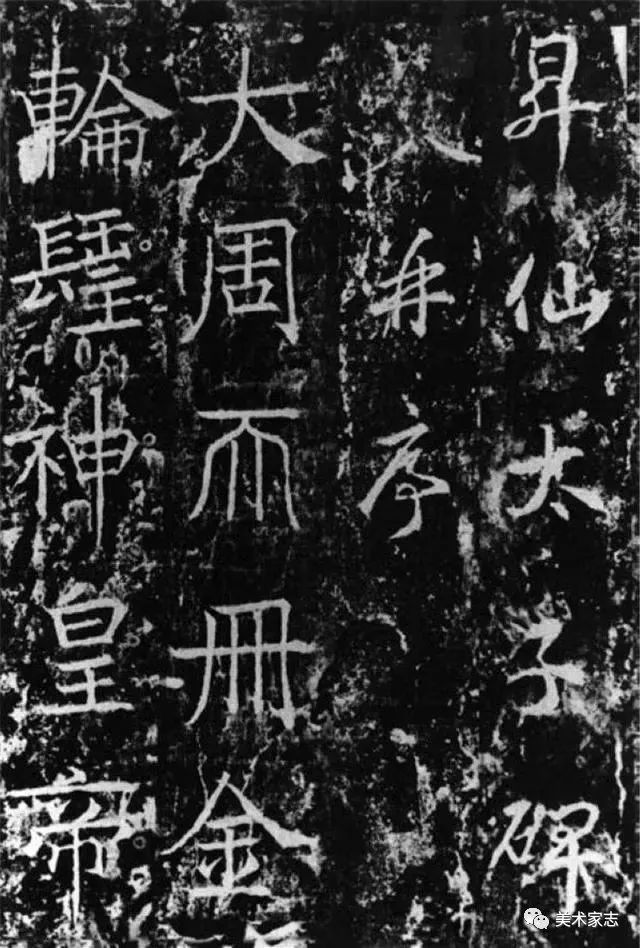 昇仙太子碑
并序
大周𠀑冊金
輪𨲢神皇帝
美术家志